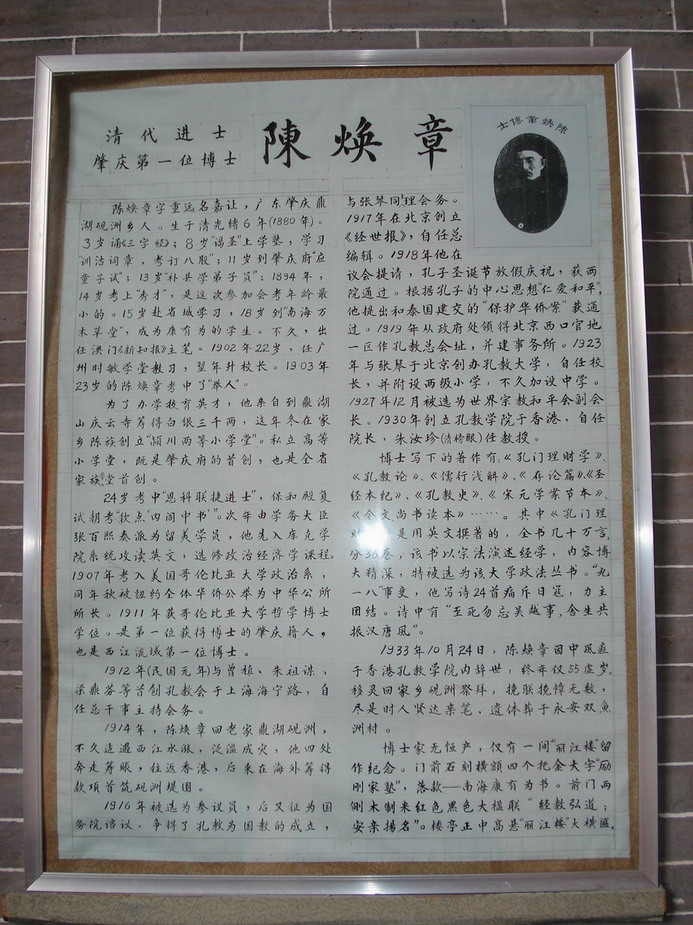 清代进士
肇庆第一位博士
陳煥章
陈焕章博士
陈焕章字重远名嘉让，广东肇庆鼎
湖砚洲乡人。生于清光绪6年(1880年)。
3岁诵《三字经》；8岁“谒圣”上学塾，学习
训诂词章，考订八股”；11岁到肇庆府“应
童子试”；13岁“补县学弟子员”；1894年，
14岁考上“秀才”，是这次参加会考年龄最
小的。15岁赴省城学习，18岁到“南海万
木草堂”，成为康有为的学生。不久，出
任澳门《新知报》主笔。1902年22岁，任广
州时敏学堂教习，翌年升校长。1903年
23岁的陈焕章考中了“举人”。
为了办学教育英才，他来自到鼎湖
山庆云寺筹得白银三千两，这年冬在家
乡陈族创立“颍川两等小学堂”。私立高等
小学堂，既是肇庆府的首创，也是全省
家族学堂首创。
24岁考中“恩科联捷进士”，保和殿复
试朝考“钦点‘内阁中书’”。次年由学务大臣
张百熙奏派为留美学员，他先入库克学
院系统攻读英文，选修政治经济学课程。
1907年考入美国哥伦比亚大学政治系，
同年秋被纽约全体华侨公举为中华公所
所长。1911年获哥伦比亚大学哲学博士
学位。是第一位获得博士的肇庆籍人，
也是西江流域第一位博士。
1912年(民国元年)与曾植、朱祖谋、
梁鼎芬等首创孔教会于上海海宁路，自
任总干事主持会务。
1914年，陈焕章回老家鼎湖砚洲，
不久连遇西江水涨，泛滥成灾，他四处
奔走筹赈，往返香港，后来在海外筹得
款项首筑砚洲堤围。
1916年被选为参议员，后又征为国
务院谘议。争得了孔教为国教的成立，
与张琴同理会务。
1917年在北京创立
《经世报》，自任总
编辑。1918年他在
议会提请，孔子圣诞节放假庆祝，获两
院通过。根据孔子的中心思想“仁爱和平”，
他提出和泰国建交的“保护华侨案”获通
过。1919年从政府处领得北京西口官地
一区作孔教总会址，并建事务所。1923
年与张琴于北京创办孔教大学，自任校
长，并附设两级小学，不久加设中学。
1927年12月被选为世界宗教和平会副会
长。1930年创立孔教学院于香港，自任
院长，朱汝珍(清榜眼)任教授。
博士写下的著作有《孔门理财学》、
《孔教论》、《儒行浅解》、《存论篇》、《圣
经本纪》、《孔教史》、《宋元学案节本》、
《今文尚书读本》……。其中《孔门理
是用英文撰著的，全书几十万言，
分36卷，该书以宗法演述经学，内容博
大精深，特被选为该大学政法丛书。“九
一八”事变，他写诗24首痛斥日寇，力主
团结。诗中有“至死勿忘吴越事，舍生共
振汉唐风”。
1933年10月24日，陈焕章因中风症
于香港孔教学院内辞世，终年仅55虚岁。
移灵回家乡砚洲祭拜，挽联挽幛无数，
尽是时人贤达亲笔，遗体葬于永安双鱼
洲村。
博士家无恒产，仅有一间“丽江楼”留
作纪念。门前石刻横额四个挖金大字“励
刚家塾”，落款—南海康有为书。前门两
侧木制朱红色黑色大楹联“经教弘道；
安亲揚名”。楼亭正中高悬“丽江楼”大横匾。